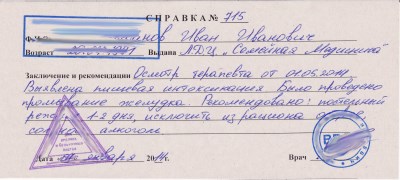 СПРАВКА № 715
Ф.И.О. Иван Иванович
Возраст Выдана ЛДЦ "Семейная Медицина"
Заключение и рекомендации Осмотр терапевта от
Выявлена пищевая интоксикация Было проведено
промывание желудка. Рекомендовано: постельный
1-2 дня, исключить из рациона
алкоголь.
Дата января 2014г. Врач